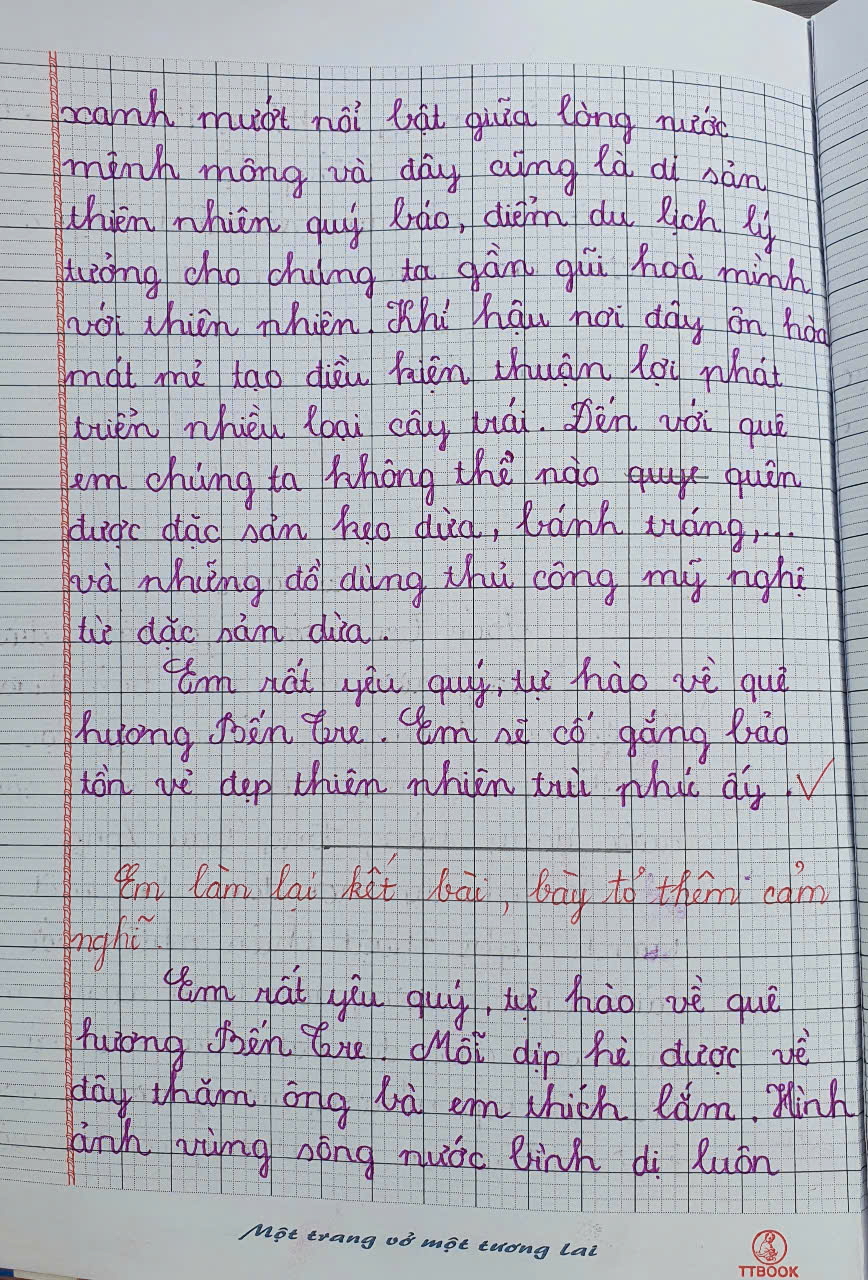 xanh mướt nổi bật giữa lòng nước
mênh mông và đây cũng là di sản
thiên nhiên quý báo, điểm du lịch lý
tưởng cho chúng ta gần gũi hoà mình
với thiên nhiên. Khí hậu nơi đây ôn hòa
mát mẻ tạo điều kiện thuận lợi phát
triển nhiều loại cây trái. Đến với quê
em chúng ta không thể nào quye quên
được đặc sản kẹo dừa, bánh tráng,...
và những đồ dùng thủ công mỹ nghị
từ đặc sản dừa.
Em rất yêu quý, tự hào về quê
hương Bến Tre. Em sẽ cố gắng bảo
tồn vẻ đẹp thiên nhiên trù phú ấy.
Em làm lại kết bài, bày tỏ thêm cảm
nghĩ.
Em rất yêu quý, tự hào về quê
hương Bến Tre. Mỗi dịp hè được về
đây thăm ông bà em thích lắm. Hình
ảnh vùng sông nước bình dị luôn
Một trang vở một tương lai
TTBOOK